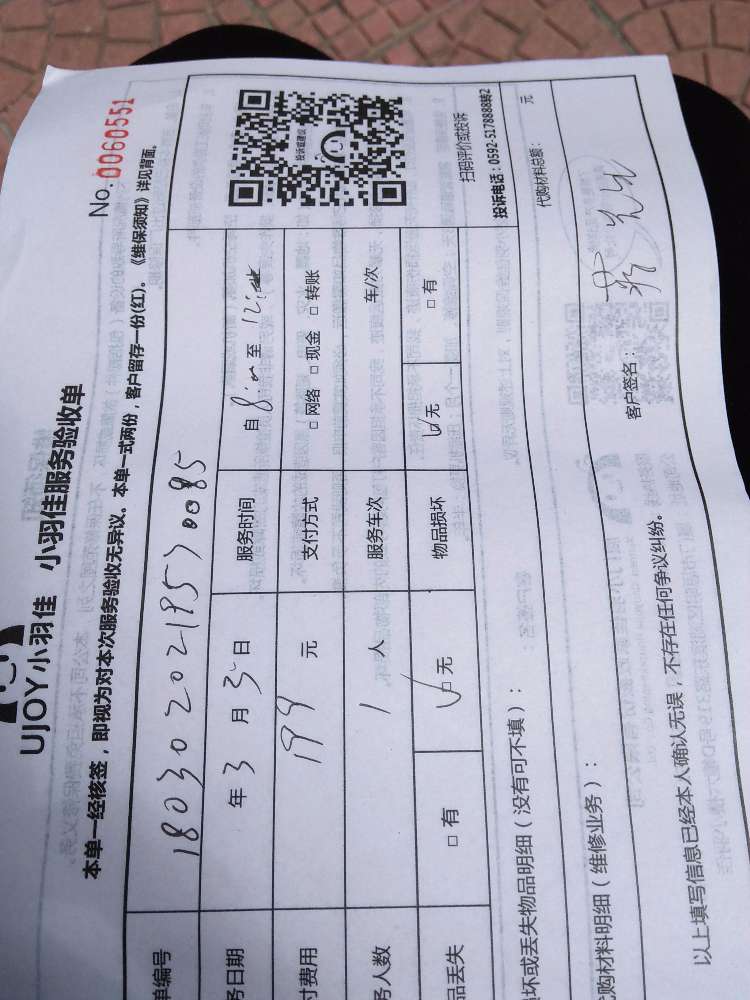 No. 0060551
UJOY小羽佳 小羽佳服务验收单
本单一经核签，即视为对本次服务验收无异议。本单一式两份，客户留存一份(红)。《维保须知》详见背面。
单编号 1803020219570085
务日期 年 3 月 3 日 服务时间 自 8:00 至 12:00
付费用 199 元 支付方式 □ 网络 □ 现金 □ 转账
务人数 1 人 服务车次 车/次
品丢失 □ 有 □ 无 物品损坏 □ 无 □ 有
投诉或建议
扫码评价或投诉
投诉电话：0592-5178888转2
坏或丢失物品明细（没有可不填）：
代购材料明细（维修业务）： 代购材料总额： 元
以上填写信息已经本人确认无误，不存在任何争议纠纷。 客户签名：